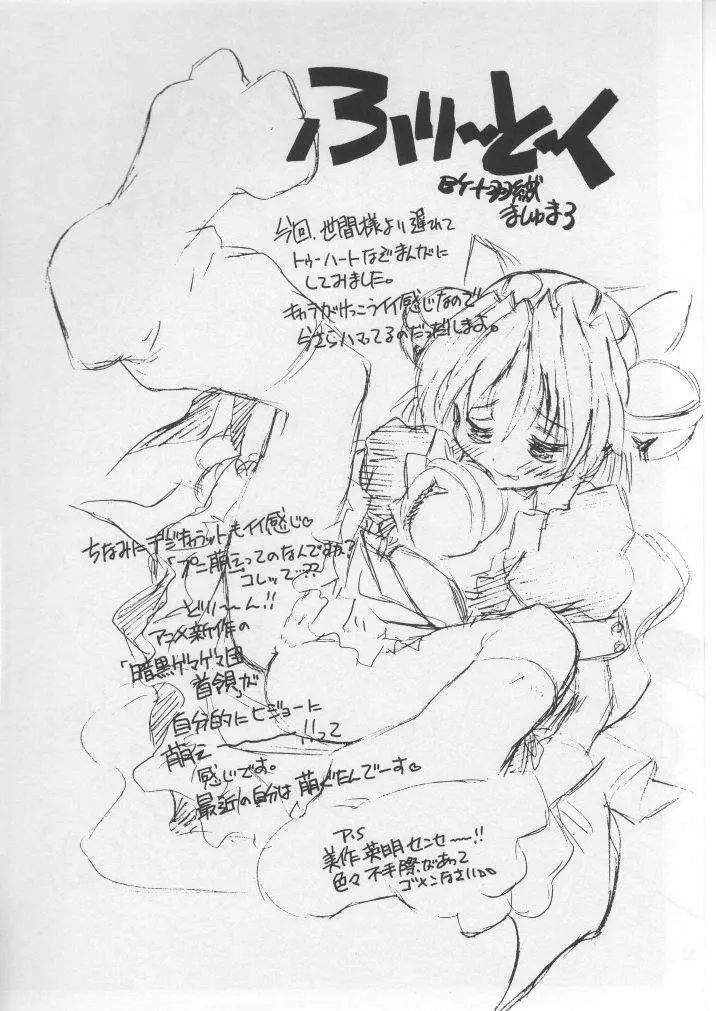 ふりーとーく
ましゅまろ
今回、世間様より遅れて
トゥーハートなどまんがに
してみました。
キャラがけっこうイイ感じなので
今さらハマってるのだっだしまよ。
ちなみにデジキャラットもイイ感じ♡
「プニ萌えってのなんですよ？
コレッて…??
どりーーん!!
アニメ新作の
「暗黒ゲマゲマ団
首領」が
自分的にヒジョーに
萌えーーー!!って
感じです。
最近の自分は萌えぐたんでーす♡
P.S
美作英明センセーー!!
色々不手際があって
ゴメンなさい